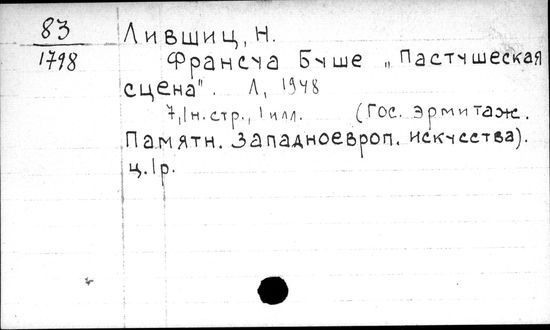 83
1798
Лившиц, Н.
Франсуа Буше „Пастушеская
сцена". Л, 1948
7,1н.стр., 1 илл. (Гос. эрмитаж.
Памятн. Западноевроп. искусства).
ц. 1р.